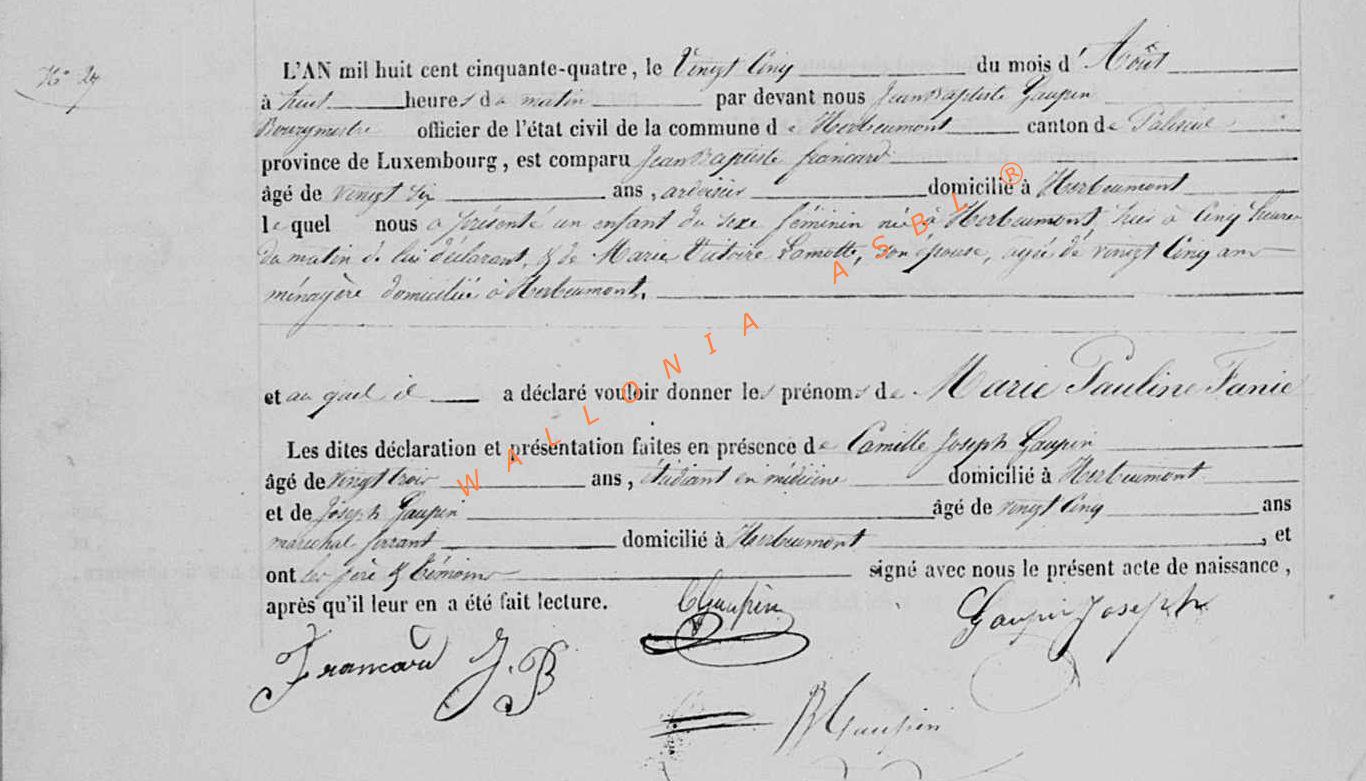 N° 27
L'AN mil huit cent cinquante-quatre, le Vingt Cinq du mois d'Août
à huit heures du matin par devant nous Jean Baptiste Gaupin
Bourgmestre officier de l'état civil de la commune de Herbeumont canton de Paliseul
province de Luxembourg, est comparu Jean Baptiste francard
âgé de vingt six ans, ardoisier domicilié à Herbeumont
le quel nous a présenté un enfant du sexe féminin né à Herbeumont, hier à Cinq heures
du matin de lui déclarant, & de Marie Victoire Lamotte, son épouse, agée de vingt Cinq ans
ménagère domiciliée à Herbeumont.
et au quel il a déclaré vouloir donner les prénoms de Marie Pauline Fanie
Les dites déclaration et présentation faites en présence de Camille Joseph Gaupin
âgé de vingt trois ans, étudiant en médecine domicilié à Herbeumont
et de Joseph Gaupin âgé de vingt Cinq ans
maréchal ferrant domicilié à Herbeumont, et
ont les père & témoins signé avec nous le présent acte de naissance,
après qu'il leur en a été fait lecture.
CGaupin
Gaupin Joseph
Francard J. B
Gaupin
WALLONIA ASBL ®